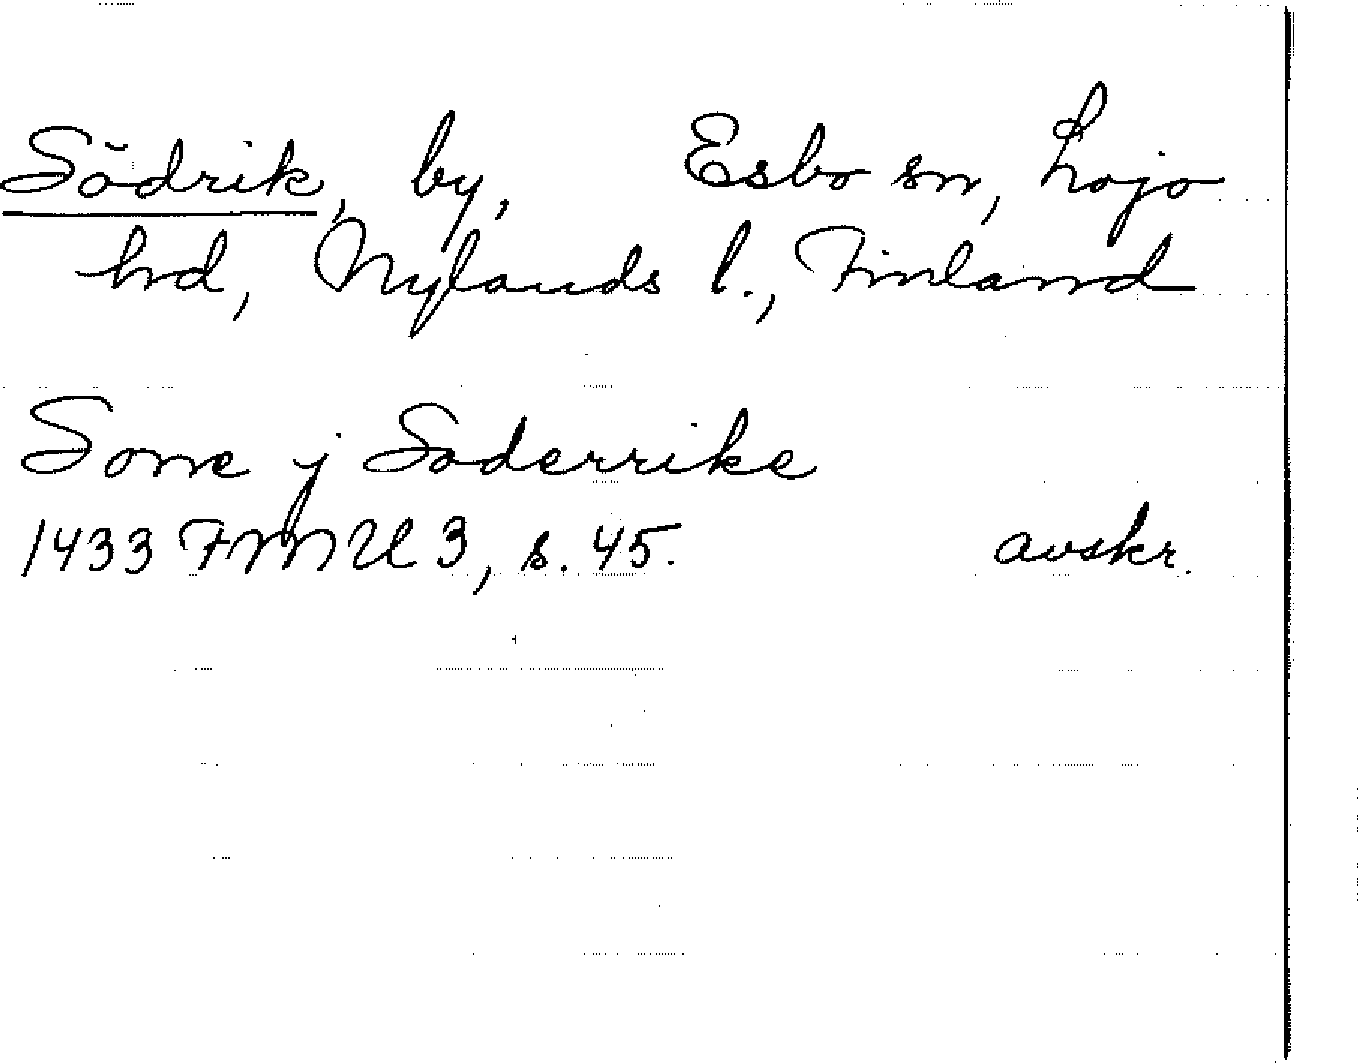 Södrik, by, Esbo sn, Lojo
hd, Nylands l., Finland
Sone j Soderrike
1433 FMU 3, s. 45. avskr.